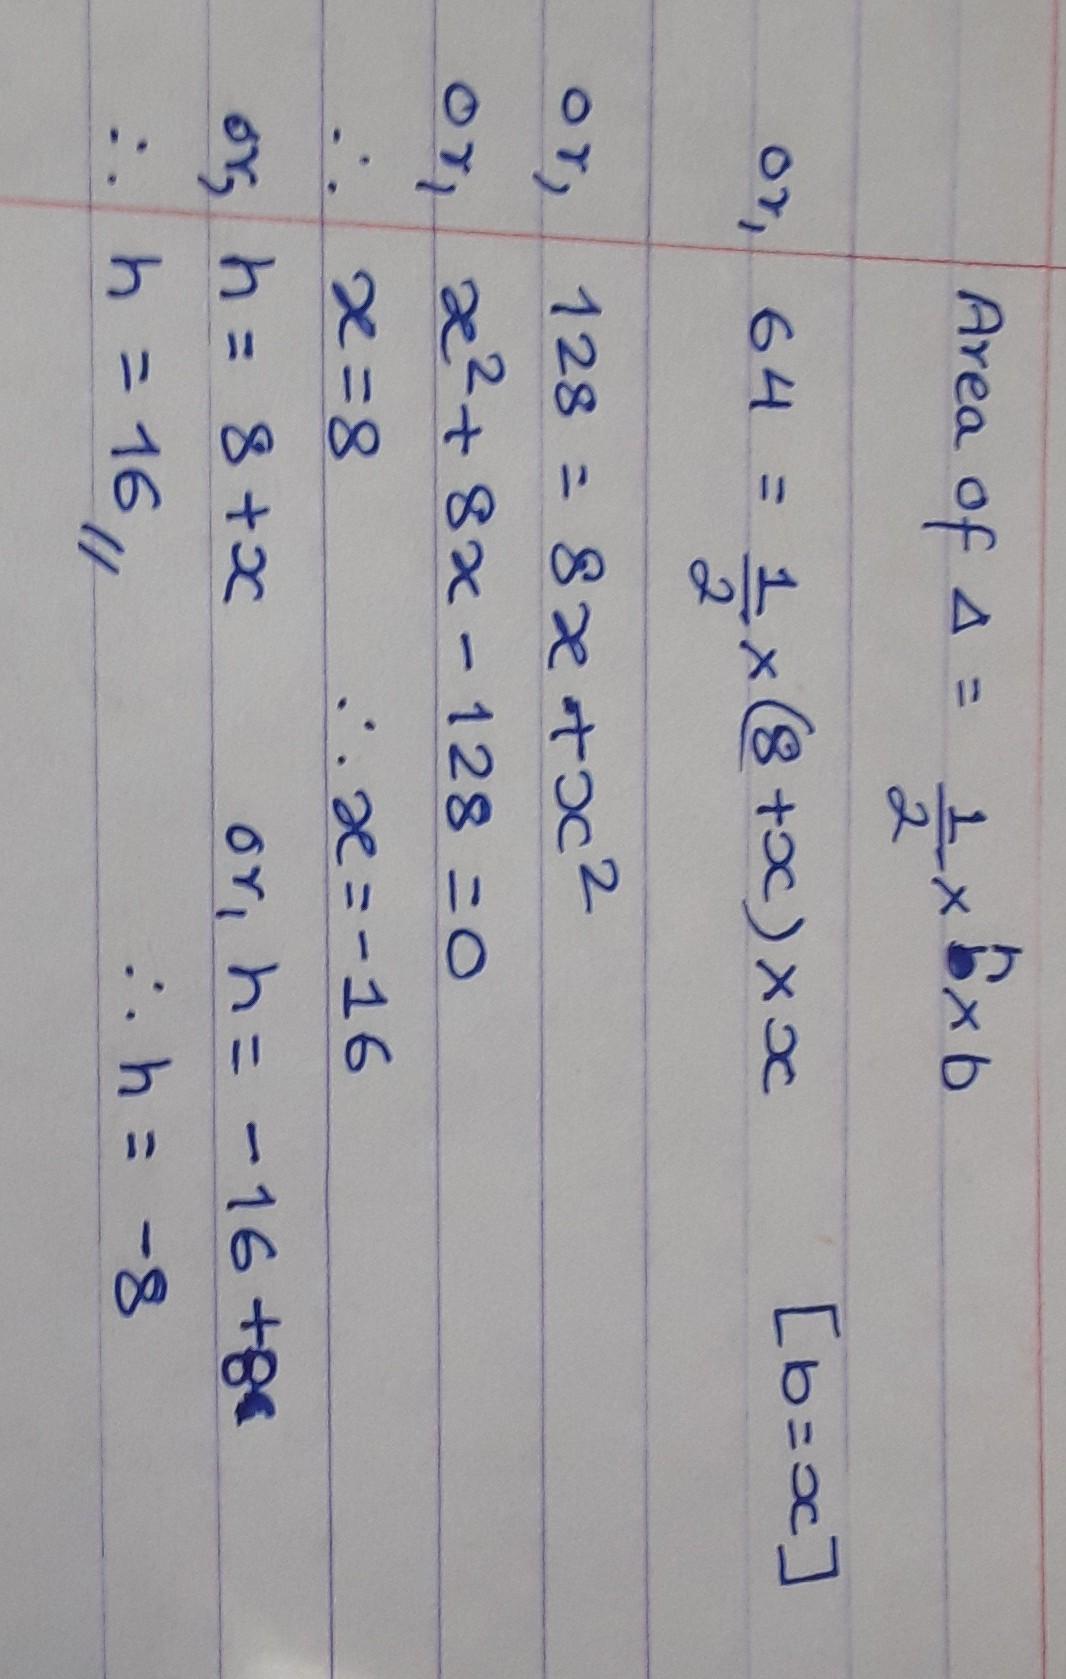 Area of Δ = 1/2 × h × b
or, 64 = 1/2 × (8 + x) × x [b = x]
or, 128 = 8x + x²
or, x² + 8x - 128 = 0
∴ x = 8 ∴ x = -16
or, h = 8 + x or, h = -16 + 8
∴ h = 16 ∴ h = -8